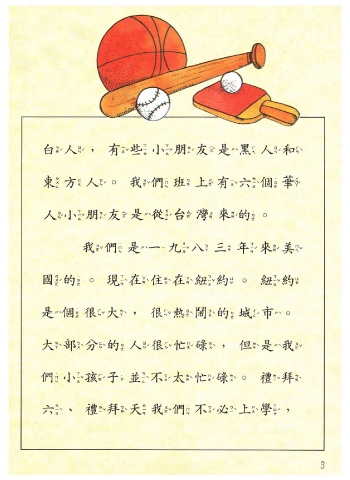 白人，有些小朋友是黑人和
東方人。我們班上有六個華
人小朋友是從台灣來的。
我們是一九八三年來美
國的。現在住在紐約。紐約
是個很大，很熱鬧的城市。
大部分的人很忙碌，但是我
們小孩子並不太忙碌。禮拜
六、禮拜天我們不必上學，
3